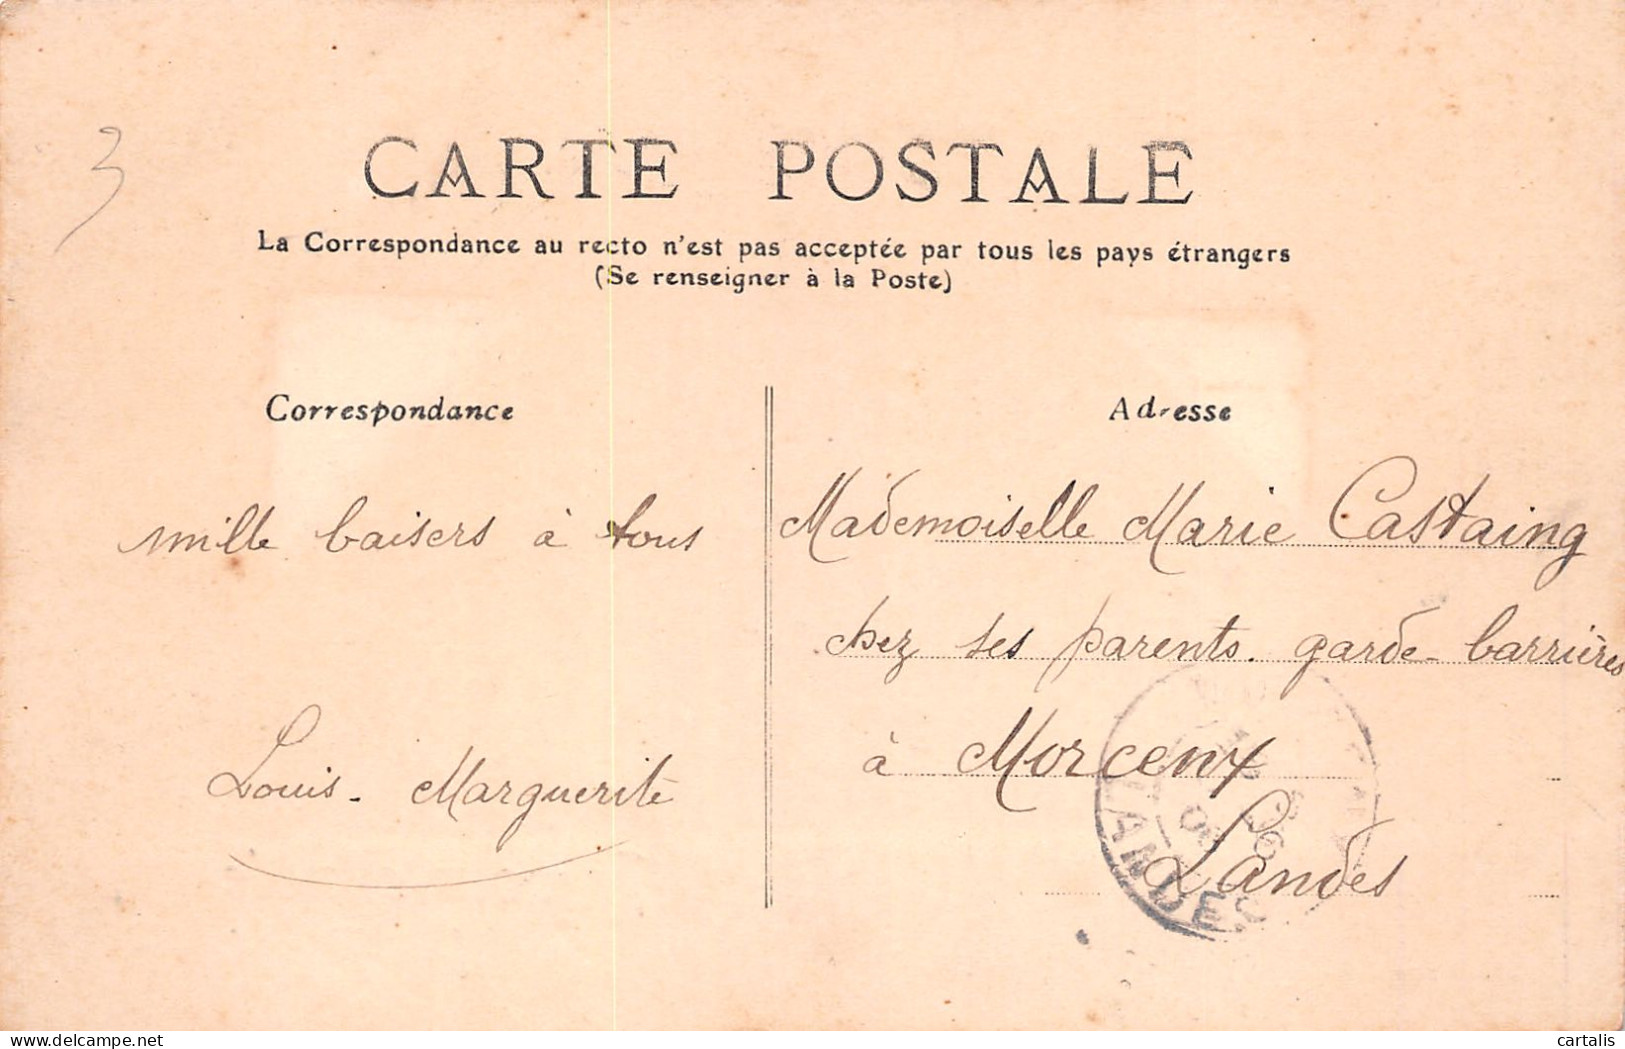 3
CARTE POSTALE
La Correspondance au recto n'est pas acceptée par tous les pays étrangers
(Se renseigner à la Poste)
Correspondance
mille baisers à tous
Louis. Marguerite
Adresse
Mademoiselle Marie Castaing
chez ses parents. garde-barrières
à Morcenx
Landes
LANDES
delcampe.net
cartalis